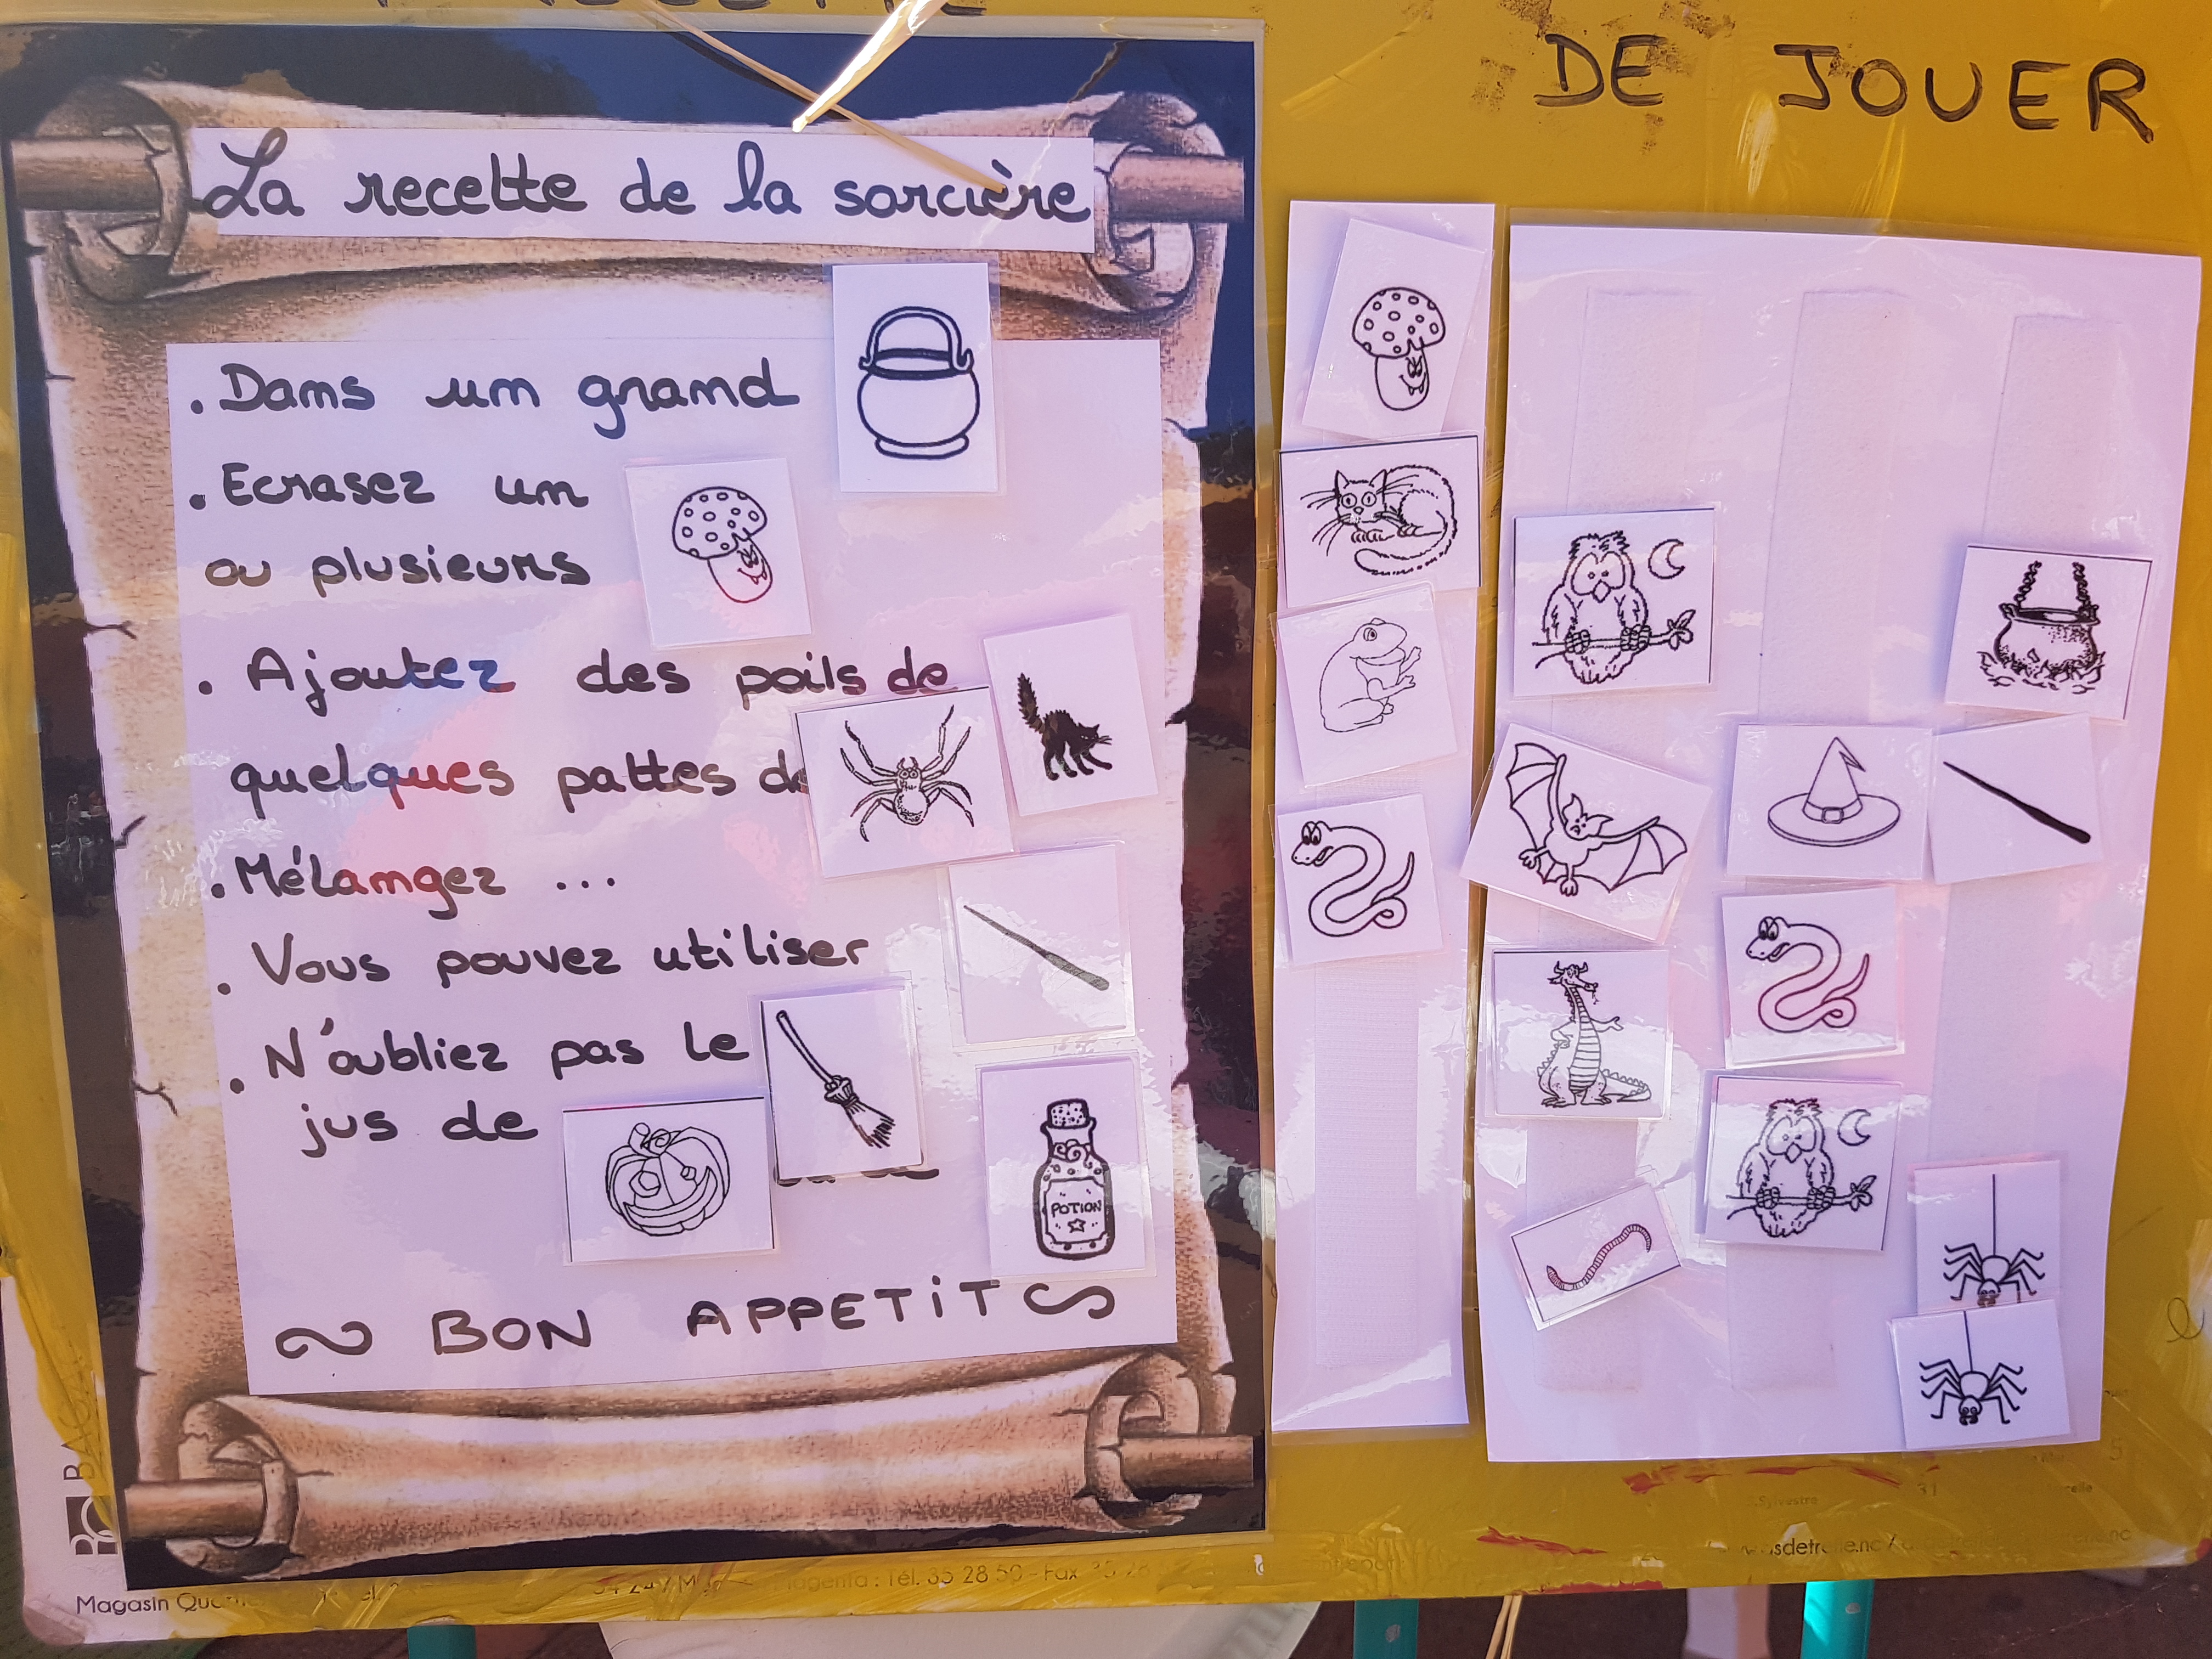 DE JOUER
La recette de la sorcière
• Dans un grand
• Ecrasez un
ou plusieurs
• Ajoutez des poils de
quelques pattes de
• Mélangez ...
• Vous pouvez utiliser
• N'oubliez pas le
jus de
POTION
~ BON APPETIT ~
5
31
Magasin
Magenta : Tél. 35 28 50 - Fax 35 28